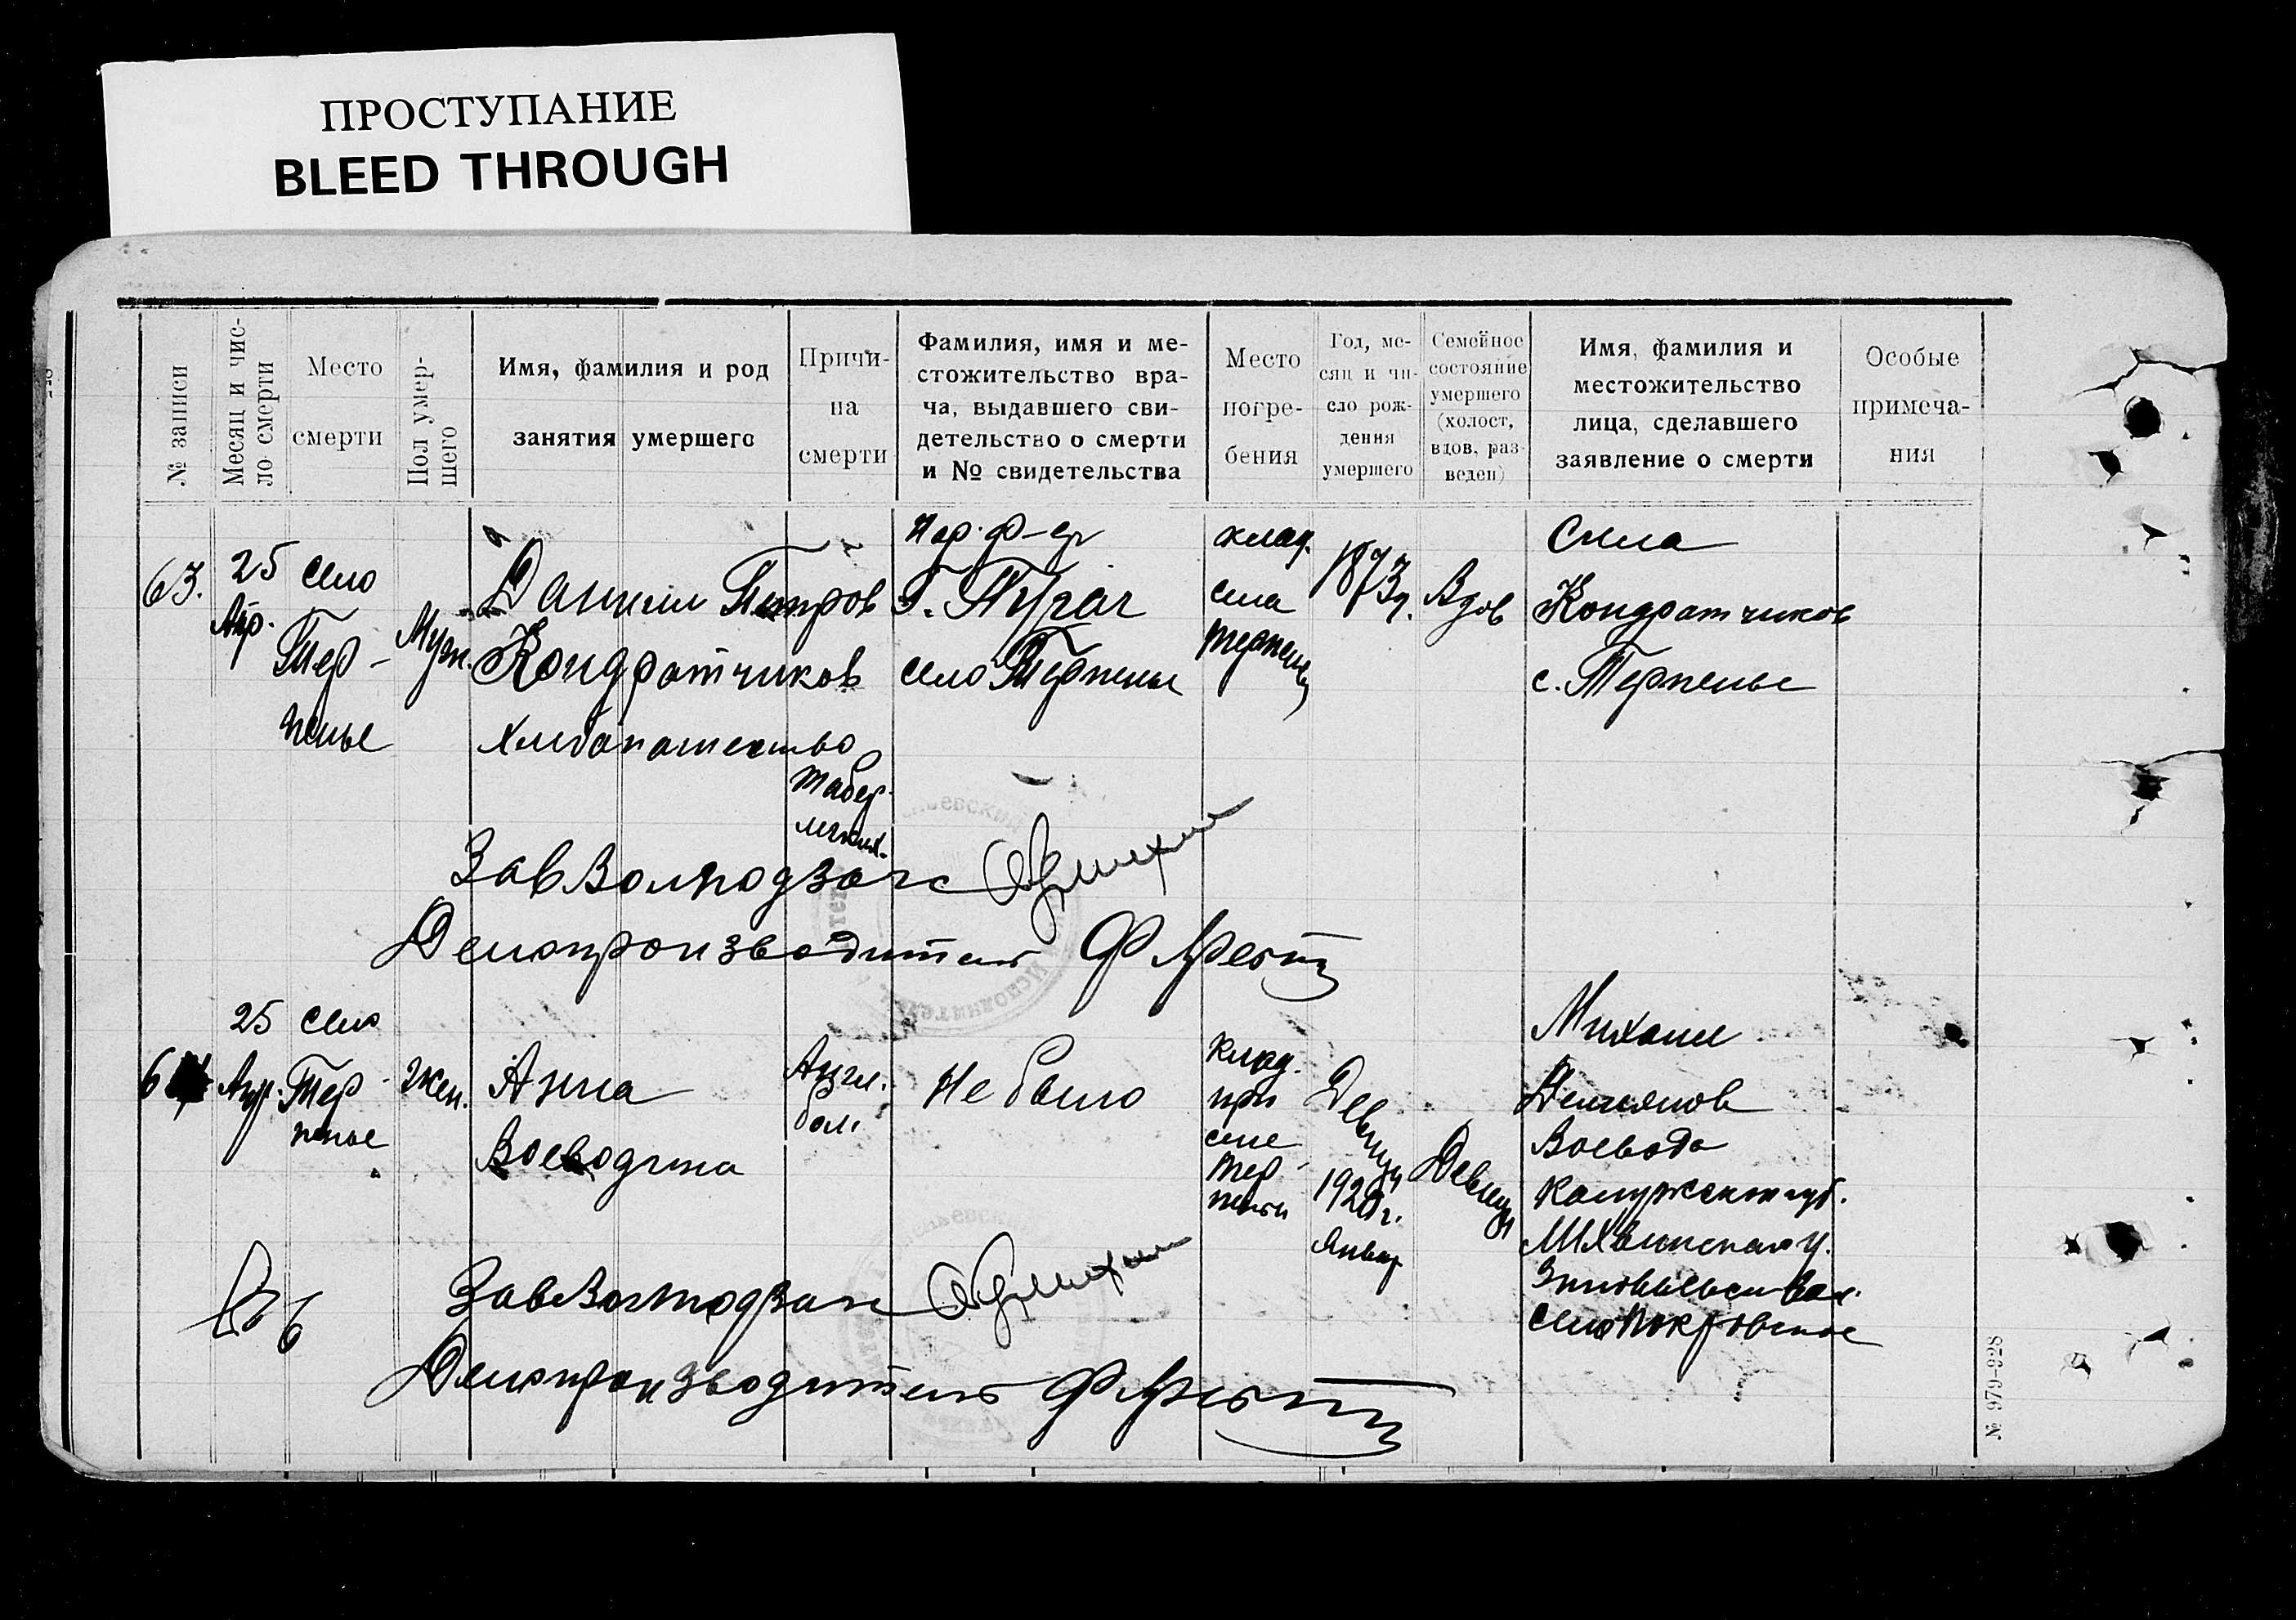 ПРОСТУПАНИЕ
BLEED THROUGH
№ записи
Месяц и чис-
ло смерти
Место
смерти
Пол умер-
шего
Имя, фамилия и род
занятия умершего
Причи-
на
смерти
Фамилия, имя и ме-
стожительство вра-
ча, выдавшего сви-
детельство о смерти
и № свидетельства
Место
погре-
бения
Год, ме-
сяц и чи-
сло рож-
дения
умершего
Семейное
состояние
умершего
(холост,
вдов, раз-
веден)
Имя, фамилия и
местожительство
лица, сделавшего
заявление о смерти
Особые
примеча-
ния
63.
25
Апр.
село
Тер-
пенье
Муж.
Даниил Петров
Кондратчиков
хлебопашество
Табер.
легких.
Г. Пугач
село Терпенье
клад.
села
Терпенья
1873 г.
Вдов
Сила
Кондратчиков
с. Терпенье
ЗавВолподзагс
Делопроизводитель
6
25
Апр.
село
Тер-
пенье
жен.
Анна
Воеводина
Англ.
бол.
Не было
клад.
при
селе
Тер-
пеньи
1920 г.
Январ
Девица
Михаил
Демьянов
Воевода
Калужской губ.
Лихвинского у.
вол.
село Покровское
ЗавВолподзагс
Делопроизводитель
№ 979-928